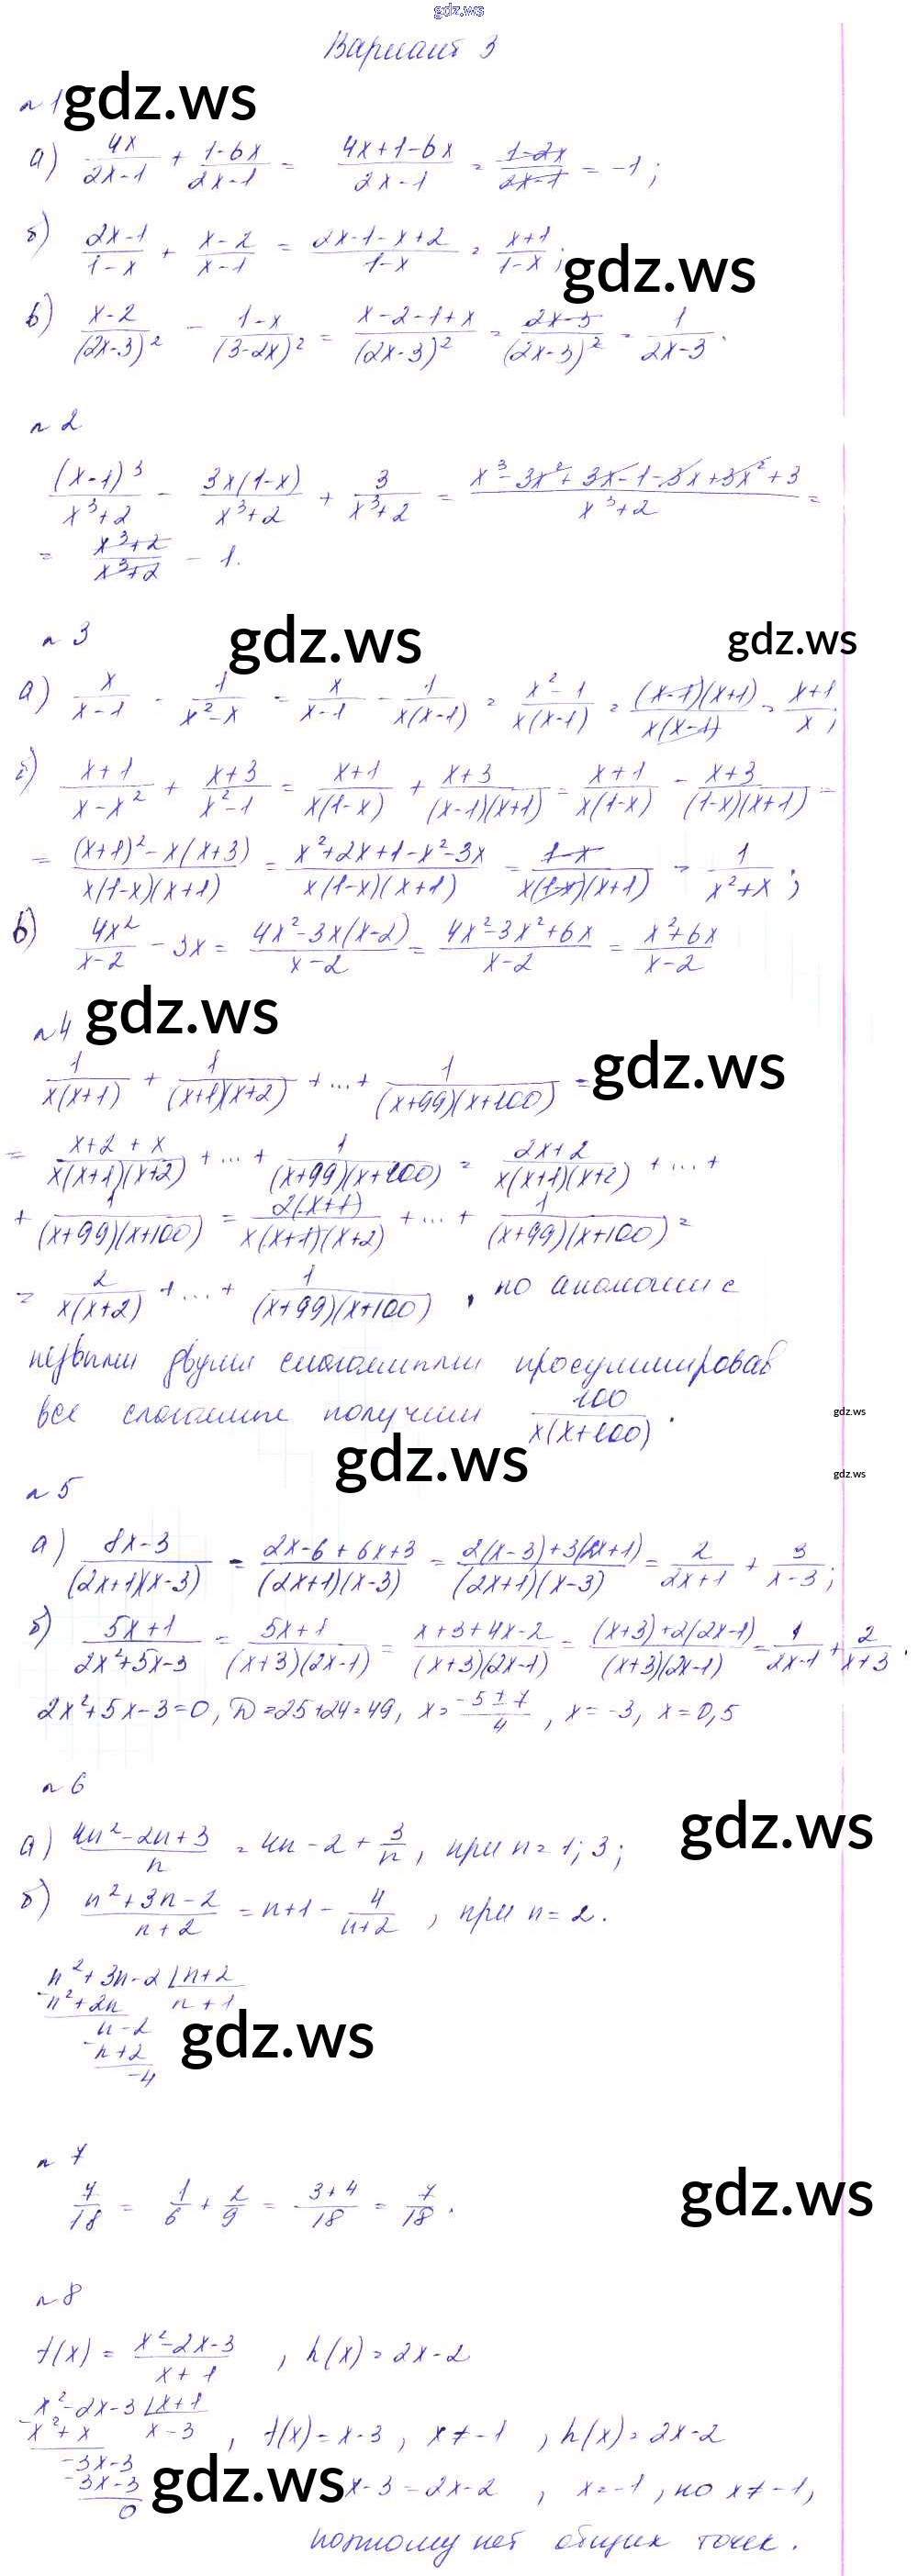 gdz.ws
Вариант 3
n 1 gdz.ws
а) 4x/(2x-1) + (1-6x)/(2x-1) = (4x+1-6x)/(2x-1) = (1-2x)/(2x-1) = -1;
б) (2x-1)/(1-x) + (x-2)/(x-1) = (2x-1-x+2)/(1-x) = (x+1)/(1-x);
gdz.ws
в) (x-2)/(2x-3)² - (1-x)/(3-2x)² = (x-2-1+x)/(2x-3)² = (2x-3)/(2x-3)² = 1/(2x-3).
n 2
(x-1)³/(x³+2) - 3x(1-x)/(x³+2) + 3/(x³+2) = (x³-3x²+3x-1-3x+3x²+3)/(x³+2) =
= (x³+2)/(x³+2) - 1.
n 3
gdz.ws
gdz.ws
а) x/(x-1) - 1/(x²-x) = x/(x-1) - 1/(x(x-1)) = (x²-1)/(x(x-1)) = (x-1)(x+1)/(x(x-1)) = (x+1)/x;
б) (x+1)/(x-x²) + (x+3)/(x²-1) = (x+1)/(x(1-x)) + (x+3)/((x-1)(x+1)) = (x+1)/(x(1-x)) - (x+3)/((1-x)(x+1)) =
= ((x+1)²-x(x+3))/(x(1-x)(x+1)) = (x²+2x+1-x²-3x)/(x(1-x)(x+1)) = (1-x)/(x(1-x)(x+1)) = 1/(x²+x);
в) 4x²/(x-2) - 3x = (4x²-3x(x-2))/(x-2) = (4x²-3x²+6x)/(x-2) = (x²+6x)/(x-2)
n 4 gdz.ws
1/(x(x+1)) + 1/((x+1)(x+2)) + ... + 1/((x+99)(x+100)) =
gdz.ws
= (x+2+x)/(x(x+1)(x+2)) + ... + 1/((x+99)(x+100)) = (2x+2)/(x(x+1)(x+2)) + ... +
+ 1/((x+99)(x+100)) = 2(x+1)/(x(x+1)(x+2)) + ... + 1/((x+99)(x+100)) =
= 2/(x(x+2)) + ... + 1/((x+99)(x+100)), по аналогии с
первыми двумя слагаемыми просуммировав
все слагаемые получим 100/(x(x+100)).
gdz.ws
gdz.ws
gdz.ws
n 5
а) (8x-3)/((2x+1)(x-3)) = (2x-6+6x+3)/((2x+1)(x-3)) = (2(x-3)+3(2x+1))/((2x+1)(x-3)) = 2/(2x+1) + 3/(x-3);
б) (5x+1)/(2x²+5x-3) = (5x+1)/((x+3)(2x-1)) = (x+3+4x-2)/((x+3)(2x-1)) = ((x+3)+2(2x-1))/((x+3)(2x-1)) = 1/(2x-1) + 2/(x+3).
2x²+5x-3=0, D=25+24=49, x=(-5±7)/4, x=-3, x=0,5
n 6
а) (4n²-2n+3)/n = 4n-2+3/n, при n=1; 3;
gdz.ws
б) (n²+3n-2)/(n+2) = n+1-4/(n+2), при n=2.
n²+3n-2 | n+2
n²+2n n+1
n-2
n+2
-4
gdz.ws
n 7
gdz.ws
7/18 = 1/6 + 2/9 = (3+4)/18 = 7/18.
n 8
f(x) = (x²-2x-3)/(x+1), h(x)=2x-2
x²-2x-3 | x+1
x²+x x-3, f(x)=x-3, x≠-1, h(x)=2x-2
-3x-3
-3x-3
0
gdz.ws
x-3=2x-2, x=-1, но x≠-1,
поэтому нет общих точек.